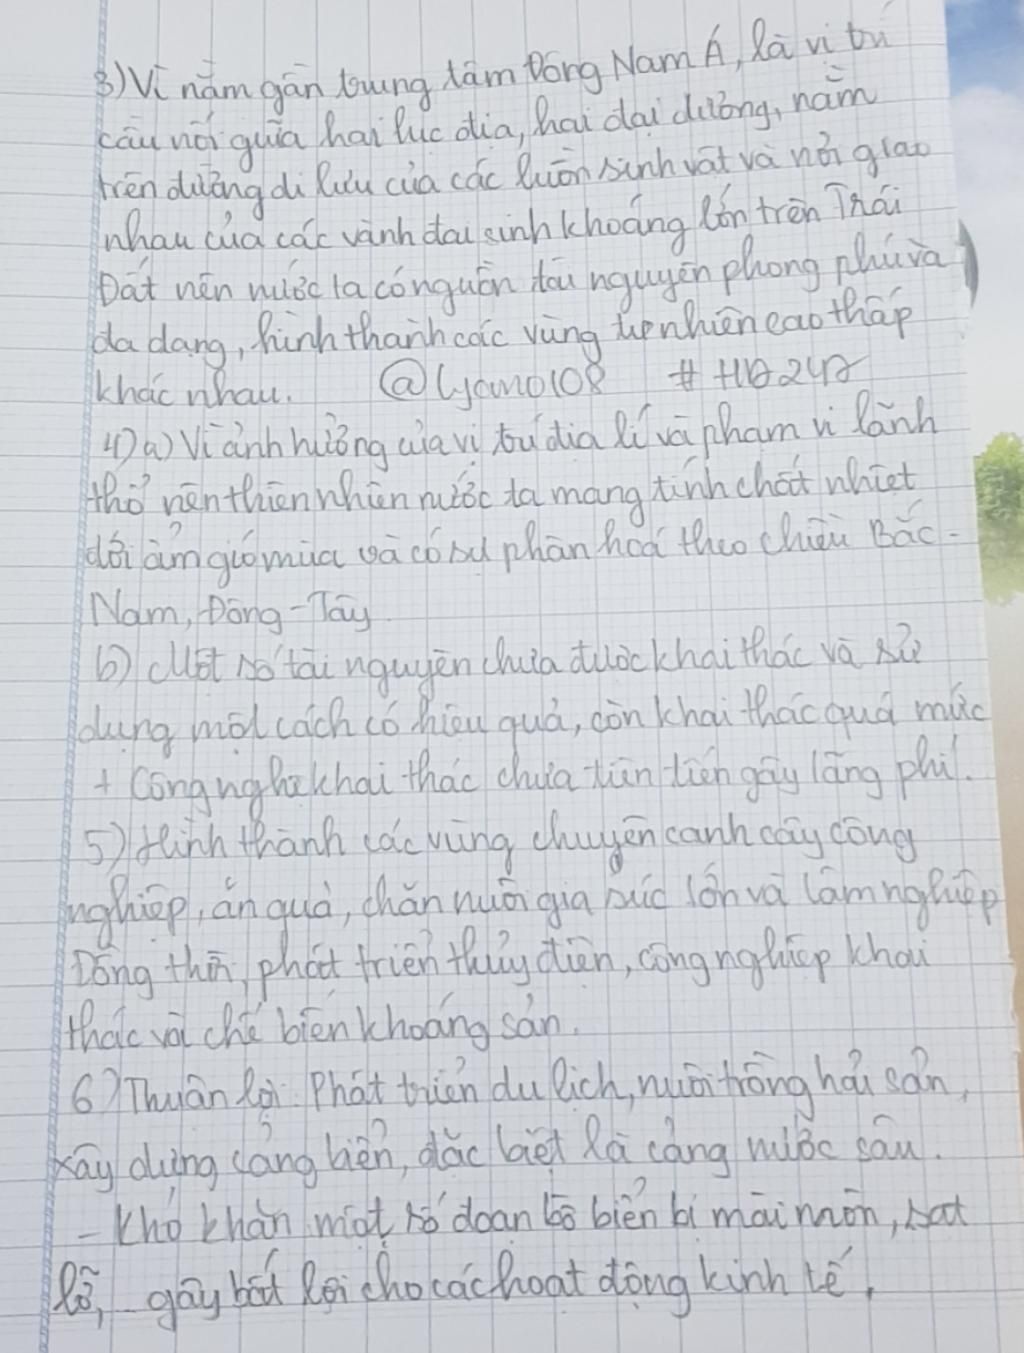 3) Vì nằm gần trung tâm Đông Nam Á, là vị trí
cầu nối giữa hai lục địa, hai đại dương, nằm
trên đường di lưu của các luồn sinh vật và nơi giao
nhau của các vành đai sinh khoáng lớn trên Trái
Đất nên nước ta có nguồn tài nguyên phong phú và
đa dạng, hình thành các vùng tự nhiên cao thấp
khác nhau. @Lyamo108 #
4) a) Vì ảnh hưởng của vị trí địa lí và phạm vi lãnh
thổ nên thiên nhiên nước ta mang tính chất nhiệt
đới ẩm gió mùa và có sự phân hoá theo chiều Bắc -
Nam, Đông - Tây
b) Một số tài nguyên chưa được khai thác và sử
dụng một cách có hiệu quả, còn khai thác quá mức
+ Công nghệ khai thác chưa tiên tiến gây lãng phí.
5) Hình thành các vùng chuyên canh cây công
nghiệp, ăn quả, chăn nuôi gia súc lớn và lâm nghiệp
Đồng thời, phát triển thủy điện, công nghiệp khai
thác và chế biến khoáng sản.
6) Thuận lợi: Phát triển du lịch, nuôi trồng hải sản,
xây dựng cảng biển, đặc biệt là cảng nước sâu.
- Khó khăn một số đoạn bờ biển bị mài mòn, sạt
lỡ, gây bất lợi cho các hoạt động kinh tế.